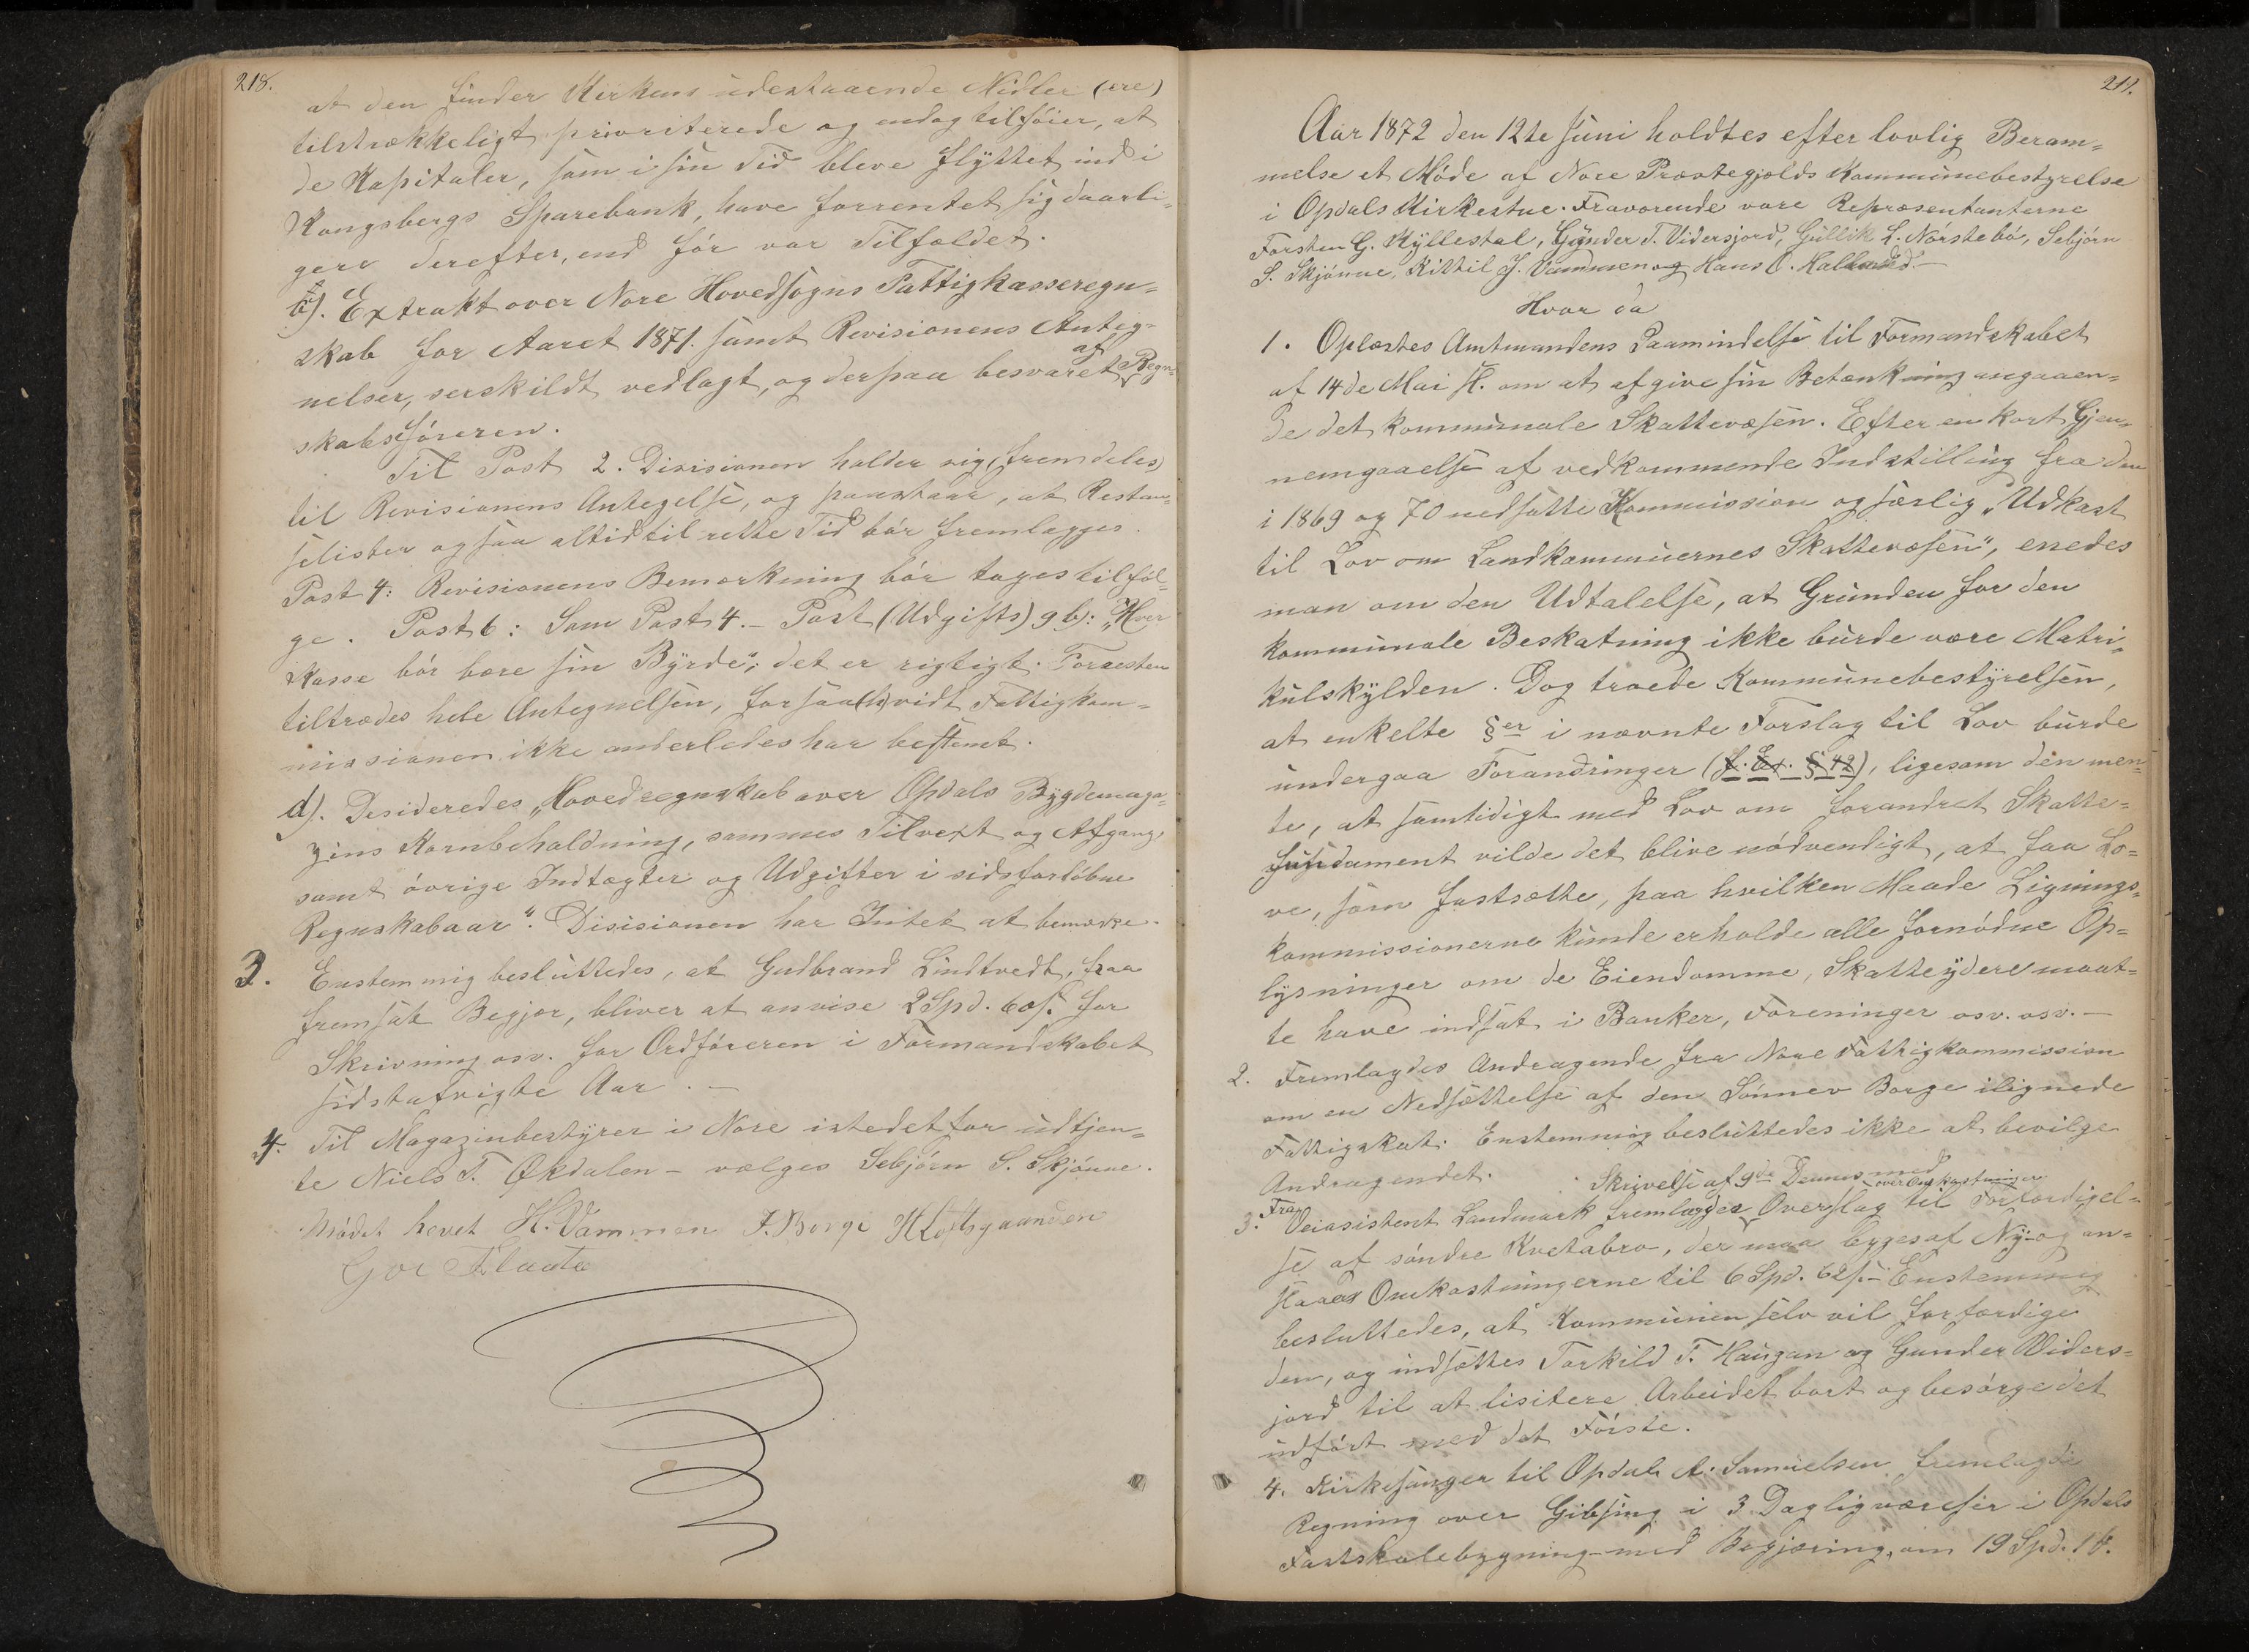 218.
at den finder Kirkens udestaaende Midler (ere)
tilstrækkeligt prioriterede og endog tilföier, at
de Kapitaler, som i sin Tid bleve flyttet ind i
Kongsbergs Sparebank, have forrentet sig daarli-
gere derefter, end för var Tilfældet.
c). Extrakt over Nore Hovedsogns Fattigkasseregn=
skab for Aaret 1871. samt Revisionens Anteg-
nelser, serskildt vedlagt, og derpaa besvaret af Regn-
skabsföreren.
Til Post 2. Disisionen holder sig (fremdeles)
til Revisionens Antegelse, og paastaar, at Restan-
selister ogsaa altid til rette Tid bör fremlægges.
Post 4: Revisionens Bemærkning bör tages tilföl=
ge. Post 6: Som Post 4. - Post (Udgifts) 9 b): "Hver
Kasse bör bære sin Byrde"; det er rigtigt. Foræsten
tiltrædes hele Antegnelsen, forsaa(h)vidt Fattigkom=
missionen ikke anderledes har bestemt.
d). Desideredes "Hovedregnskab over Opdals Bygdemaga=
zins Kornbeholdning, sammes Tilvext og Afgang
samt övrige Indtægter og Udgifter i sidsforlöbne
Regnskabaar". Disisionen har Intet at bemærke.
3. Enstemmig besluttedes, at Gudbrand Lindtvedt, fraa
fremsat Begjær, bliver at anvise 2 Spd. 60 s. for
Skrivning osv. for Ordföreren i Formandskabet
sidstafvigte Aar. -
4. Til Magazinbestyrer i Nore istedetfor udtjen=
te Niels T. Økdalen - vælges Sebjörn S. Skjönne.
Mödet hevet H. Vammen J. Borge H Loftsgaarden
Goe Flaata
211.
Aar 1872 den 12te Juni holdtes efter lovlig Beram=
melse et Möde af Nore Præstegjælds Kommunebestyrelse
i Opdals Kirkestue. Fraværende vare Repræsentanterne
Torsten G. Kyllestal, Gunder T. Vidersjord, Gullik L. Nörstebö, Sebjörn
S. Skjönne, Kittil J. Vammen og Hans O. Halland. -
Hvor da
1. Oplæstes Amtmandens Paamindelse til Formandskabet
af 14de Mai sl. om at afgive sin Betænkning angaaen=
de det kommunale Skattevæsen. Efter en kort Gjen=
nemgaaelse af vedkommende Indstilling fra den
i 1869 og 70 nedsatte Kommission og særlig "Udkast
til Lov om Landkommunernes Skattevæsen", enedes
man om den Udtalelse, at Grunden for den
kommunale Beskatning ikke burde være Matri=
kulskylden. Dog troede Kommunebestyrelsen,
at enkelte §er i nævnte Forslag til Lov burde
undergaa Forandringer (f. Ex. § 42), ligesom den men=
te, at samtidigt med Lov om forandret Skatte=
fundament vilde det blive nödvendigt, at faa Lo=
ve, som fastsætte, paa hvilken Maade Lignings=
kommissionerne kunde erholde alle fornödne Op=
lysninger om de Eiendomme, Skatteydere maat=
te have indsat i Banker, Foreninger osv. osv. -
2. Fremlagdes Andragende fra Nore Fattigkommission
om en Nedsættelse af den Sönnev Borge ilignede
Fattigskat. Enstemmig besluttedes ikke at bevilge
Andragendet. Skrivelse af 9de Dennes med
over Omkostninger
3. Fra Veiasistent Landmark fremlagdes Overslag til Forfærdigel=
se af söndre Kvetabro, der maa bygges af Ny - og an=
slaaes Omkostningerne til 6 Spd. 62 s. - Enstemmig
besluttedes, at Kommunen selv vil forfærdige
den, og indsættes Torkild T. Haugan og Gunder Viders=
jord til at lisitere Arbeidet bort og besörge det
udfört med det Förste.
4. Kirkesanger til Opdal A. Samuelsen fremlagde
Regning over Gibsing i 3 Dagligværelser i Opdals
Fastskolebygning - med Begjæring, om 19 Spd. 1 s.